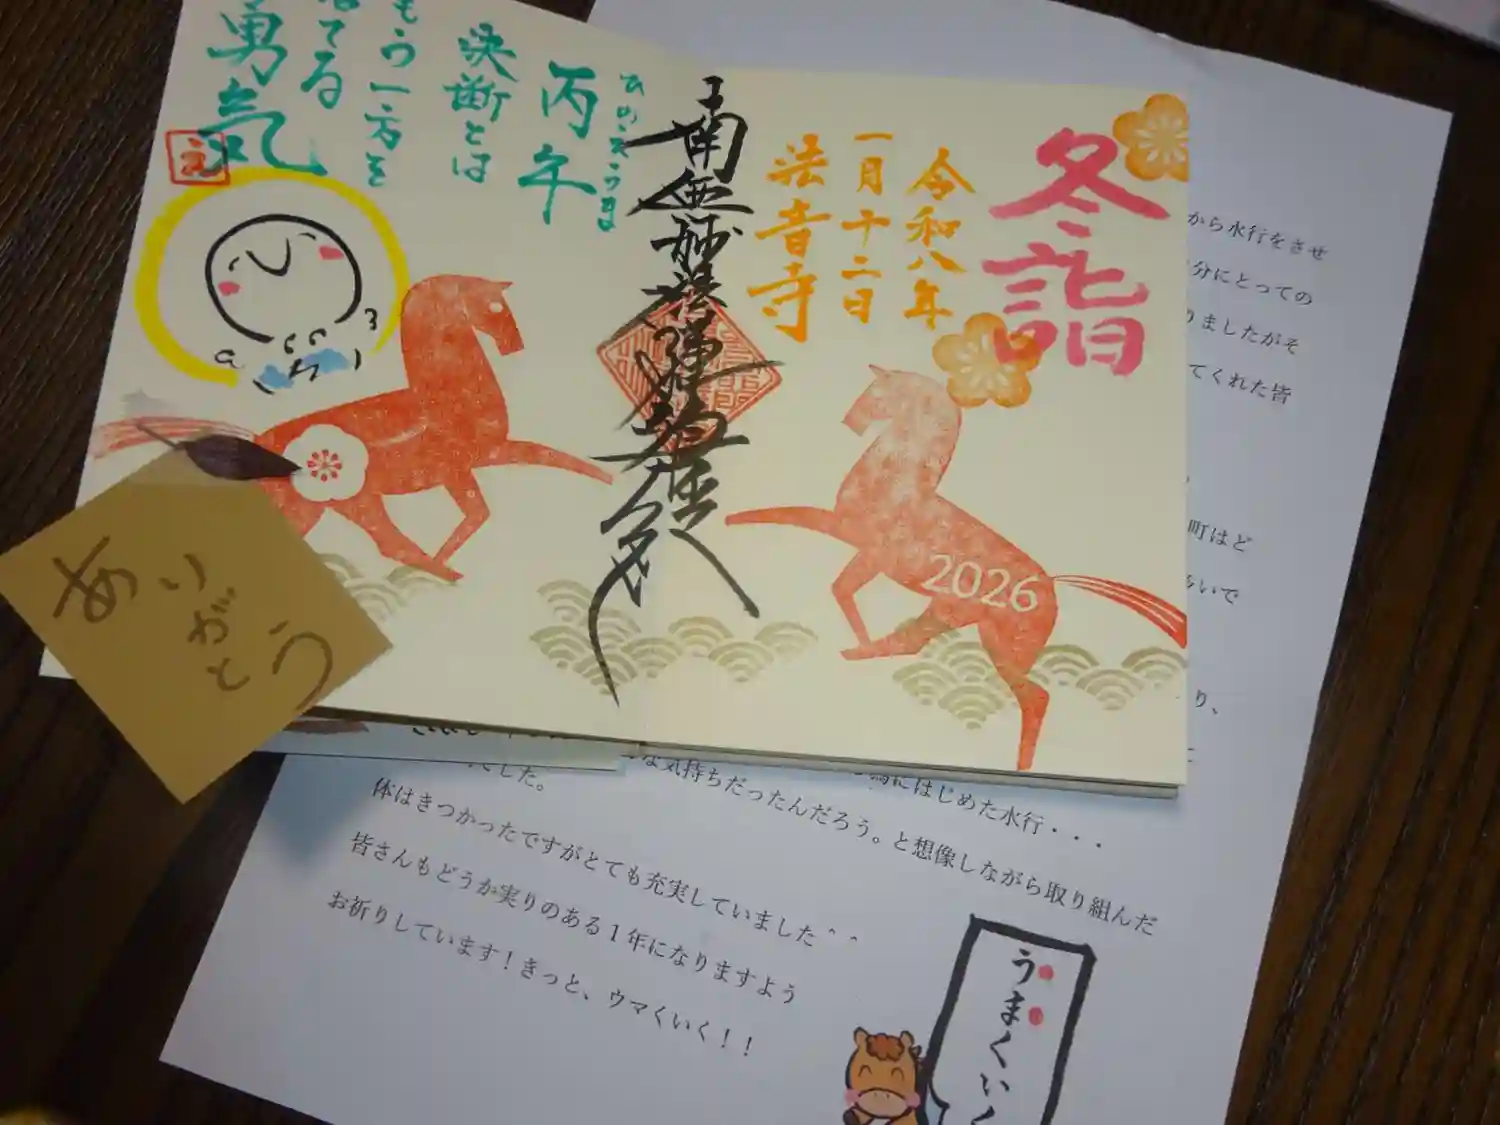 冬詣
令和八年
一月十二日
法音寺
南無妙法蓮華経
ひのえうま
丙午
決断とは
もう一方を
捨てる
勇気
ありがとう
2026
から水行をさせ
分にとっての
りましたがそ
てくれた皆
町はど
いで
り、
にはじめた水行・・・
な気持ちだったんだろう。と想像しながら取り組んだ
した。
体はきつかったですがとても充実していました＾＾
皆さんもどうか実りのある1年になりますよう
お祈りしています！きっと、ウマくいく！！
うまくいく